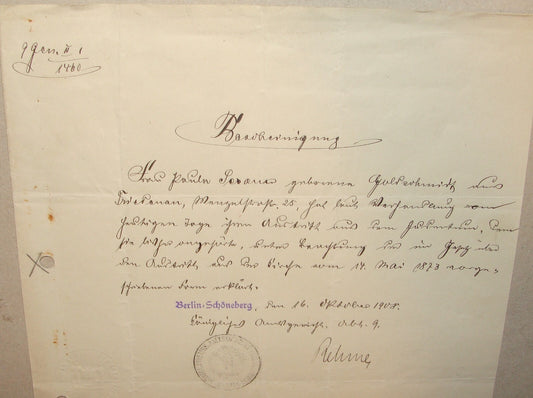 9 Gen. II 1
1460
Bescheinigung
Frau Paula geborene Goldschmidt aus
Friedenau, Wengelstr. 25, hat laut Verhandlung vom
heutigen Tage ihren Austritt aus dem Judentum, dem
sie bisher angehörte, unter Beachtung der im Gesetz über
den Austritt aus der Kirche vom 14. Mai 1873 vorge-
schriebenen Form erklärt.
Berlin-Schöneberg, den 16. Oktober 1908.
Königliches Amtsgericht. Abt. 9.
Rehme